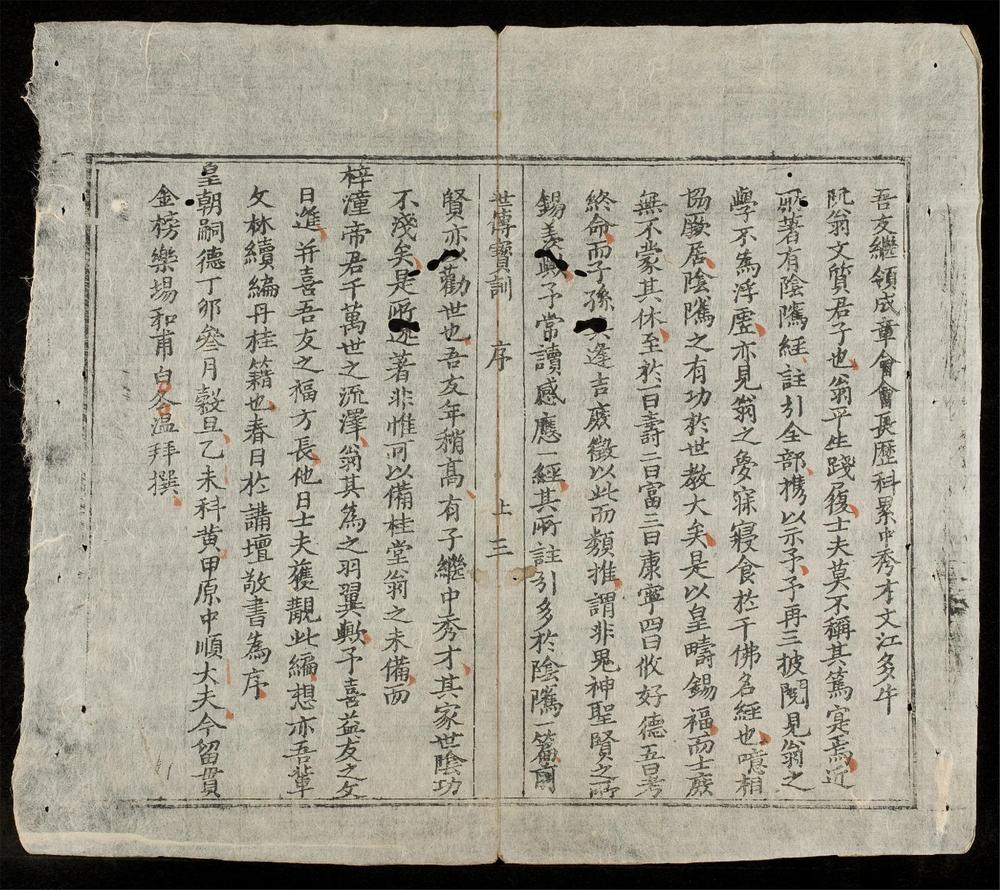 吾友繼領成章會會長歷科累中秀才文江多牛
阮翁文質君子也翁平生踐履士夫莫不稱其篤寔焉近
所著有陰騭經註引全部携以示予予再三披閱見翁之
學不為浮虛亦見翁之夢寐寢食於千佛名經也噫相
協厥居陰騭之有功於世教大矣是以皇疇錫福而士庶
無不蒙其休至於一曰壽二曰富三曰康寧四曰攸好德五曰考
終命而子孫逢吉庶徵以此而類推謂非鬼神聖賢之所
錫羨與予常讀感應一經其所註引多於陰騭一篇前
世傳寶訓 序 上 三
賢亦以勸世也吾友年稍高有子繼中秀才其家世陰功
不淺矣是所述著非惟可以備桂堂翁之未備而
梓潼帝君千萬世之流澤翁其為之羽翼歟予喜益友之文
日進并喜吾友之福方長他日士夫獲覩此編想亦吾輩
文林續編丹桂籍也春日於講壇敬書為序
皇朝嗣德丁卯叁月穀旦乙未科黄甲原中順大夫今留貫
金榜樂場和甫白冬温拜撰